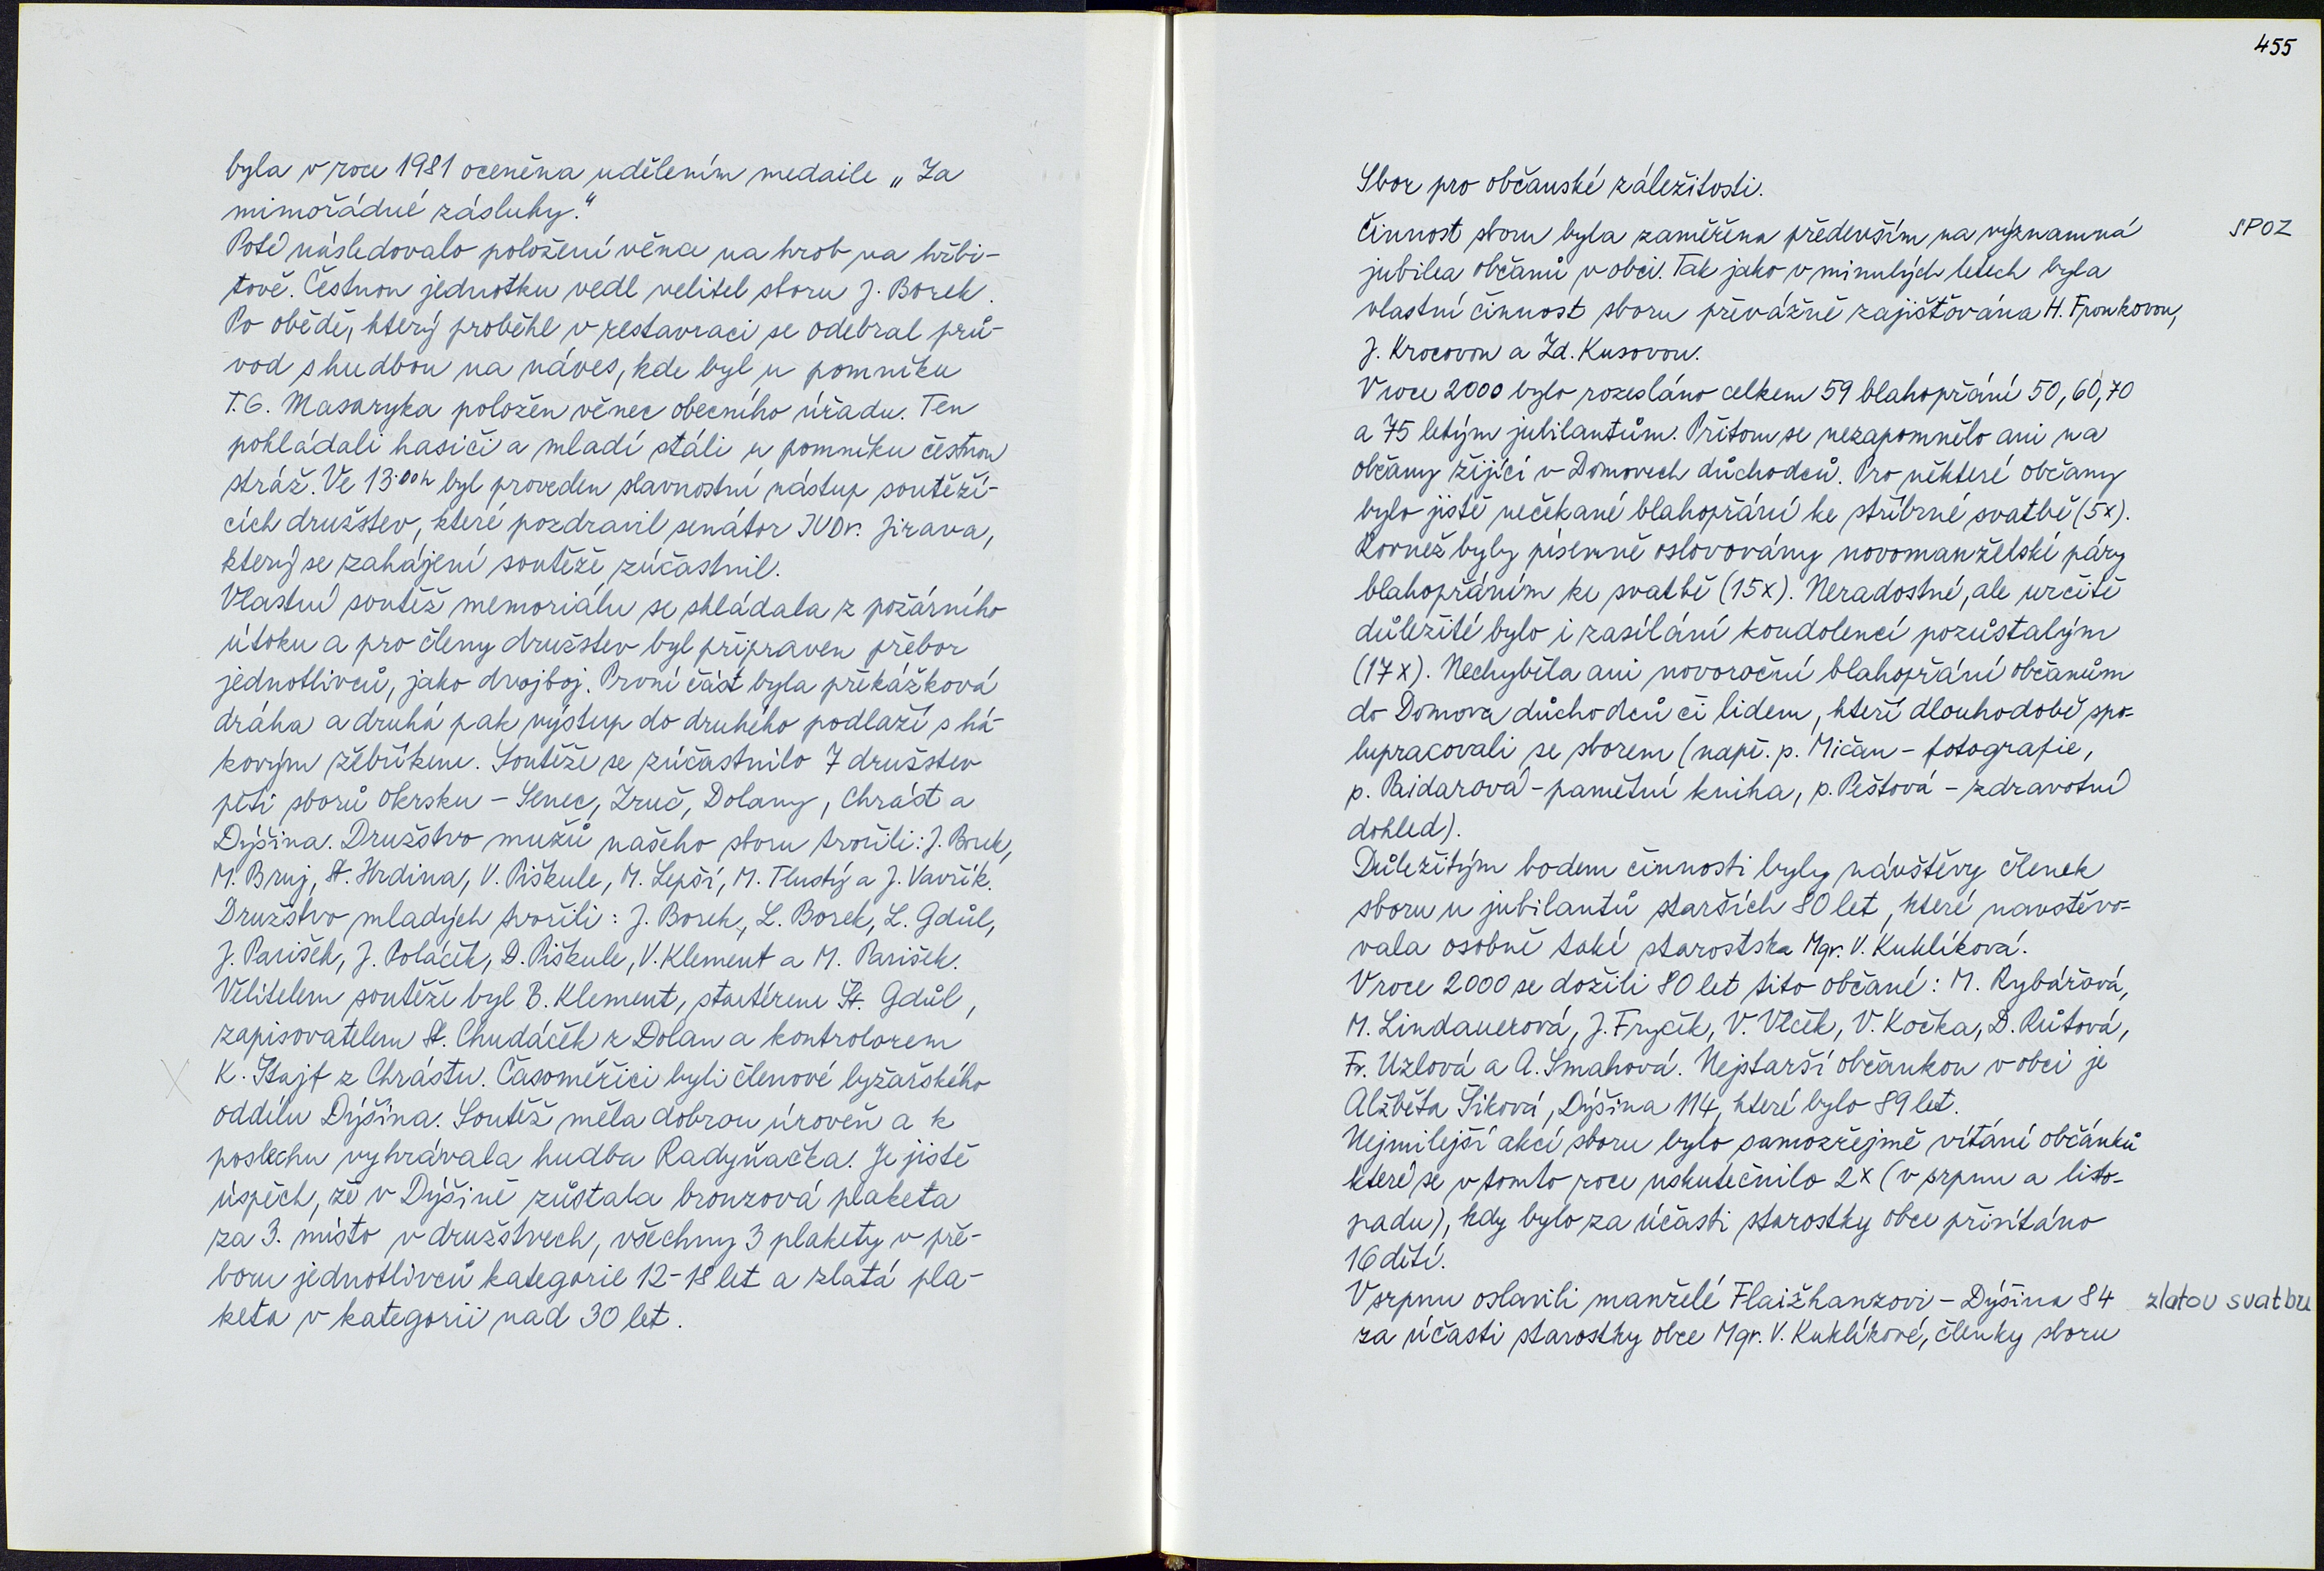 byla v roce 1981 oceněna udělením medaile „Za
mimořádné zásluhy."
Poté následovalo položení věnce na hrob na hřbi-
tově. Čestnou jednotku vedl velitel sboru J. Borek.
Po obědě, který proběhl v restavraci se odebral prů-
vod s hudbou na náves, kde byl u pomníku
T. G. Masaryka položen věnec obecního úřadu. Ten
pokládali hasiči a mladí stáli u pomníku čestnou
stráž. Ve 13.00h byl proveden slavnostní nástup soutěží-
cích družstev, které pozdravil senátor JUDr. Jirava,
který se zahájení soutěže zúčastnil.
Vlastní soutěž memoriálu se skládala z požárního
útoku a pro členy družstev byl připraven přebor
jednotlivců, jako dvojboj. První část byla překážková
dráha a druhá pak výstup do druhého podlaží s há-
kovým žebříkem. Soutěže se zúčastnilo 7 družstev
pěti sborů okrsku - Senec, Zruč, Dolany, Chrást a
Dýšina. Družstvo mužů našeho sboru tvořili: J. Borek,
M. Bruj, St. Hrdina, V. Piškule, M. Lepší, M. Tlustý a J. Vavřík.
Družstvo mladých tvořili: J. Borek, L. Borek, L. Gdůl,
J. Parišek, J. Poláček, D. Piškule, V. Klement a M. Parišek.
Velitelem soutěže byl B. Klement, startérem St. Gdůl,
zapisovatelem St. Chudáček z Dolan a kontrolorem
K. Štajf z Chrástu. Časoměřiči byli členové lyžařského
oddílu Dýšina. Soutěž měla dobrou úroveň a k
poslechu vyhrávala hudba Radyňačka. Je jistě
úspěch, že v Dýšině zůstala bronzová plaketa
za 3. místo v družstvech, všechny 3 plakety v pře-
boru jednotlivců kategorie 12-18 let a zlatá pla-
keta v kategorii nad 30 let.
455
Sbor pro občanské záležitosti.
Činnost sboru byla zaměřena především na významná
SPOZ
jubilea občanů v obci. Tak jako v minulých letech byla
vlastní činnost sboru převážně zajišťována H. Fronkovou,
J. Krocovou a Zd. Kusovou.
V roce 2000 bylo rozesláno celkem 59 blahopřání 50, 60, 70
a 75 letým jubilantům. Přitom se nezapomnělo ani na
občany žijící v Domovech důchodců. Pro některé občany
bylo jistě nečekané blahopřání ke stříbrné svatbě (5x).
Rovněž byly písemně oslovovány novomanželské páry
blahopřáním ke svatbě (15x). Neradostné, ale určitě
důležité bylo i zasílání kondolencí pozůstalým
(17x). Nechyběla ani novoroční blahopřání občanům
do Domova důchodců či lidem, kteří dlouhodobě spo-
lupracovali se sborem (např. p. Mičan - fotografie,
p. Paidarová - pamětní kniha, p. Peštová - zdravotní
dohled).
Důležitým bodem činnosti byly návštěvy členek
sboru u jubilantů starších 80 let, které navštěvo-
vala osobně také starostska Mgr. V. Kuklíková.
V roce 2000 se dožili 80 let tito občané: M. Rybářová,
M. Lindauerová, J. Fryček, V. Vlček, V. Kočka, D. Růtová,
Fr. Uzlová a A. Smahová. Nejstarší občankou v obci je
Alžběta Šiková, Dýšina 114, které bylo 89 let.
Nejmilejší akcí sboru bylo samozřejmě vítání občánků
které se v tomto roce uskutečnilo 2x (v srpnu a listo-
padu), kdy bylo za účasti starostky obce přivítáno
16 dětí.
V srpnu oslavili manželé Flaižhanzovi - Dýšina 84
zlatou svatbu
za účasti starostky obce Mgr. V. Kuklíkové, členky sboru